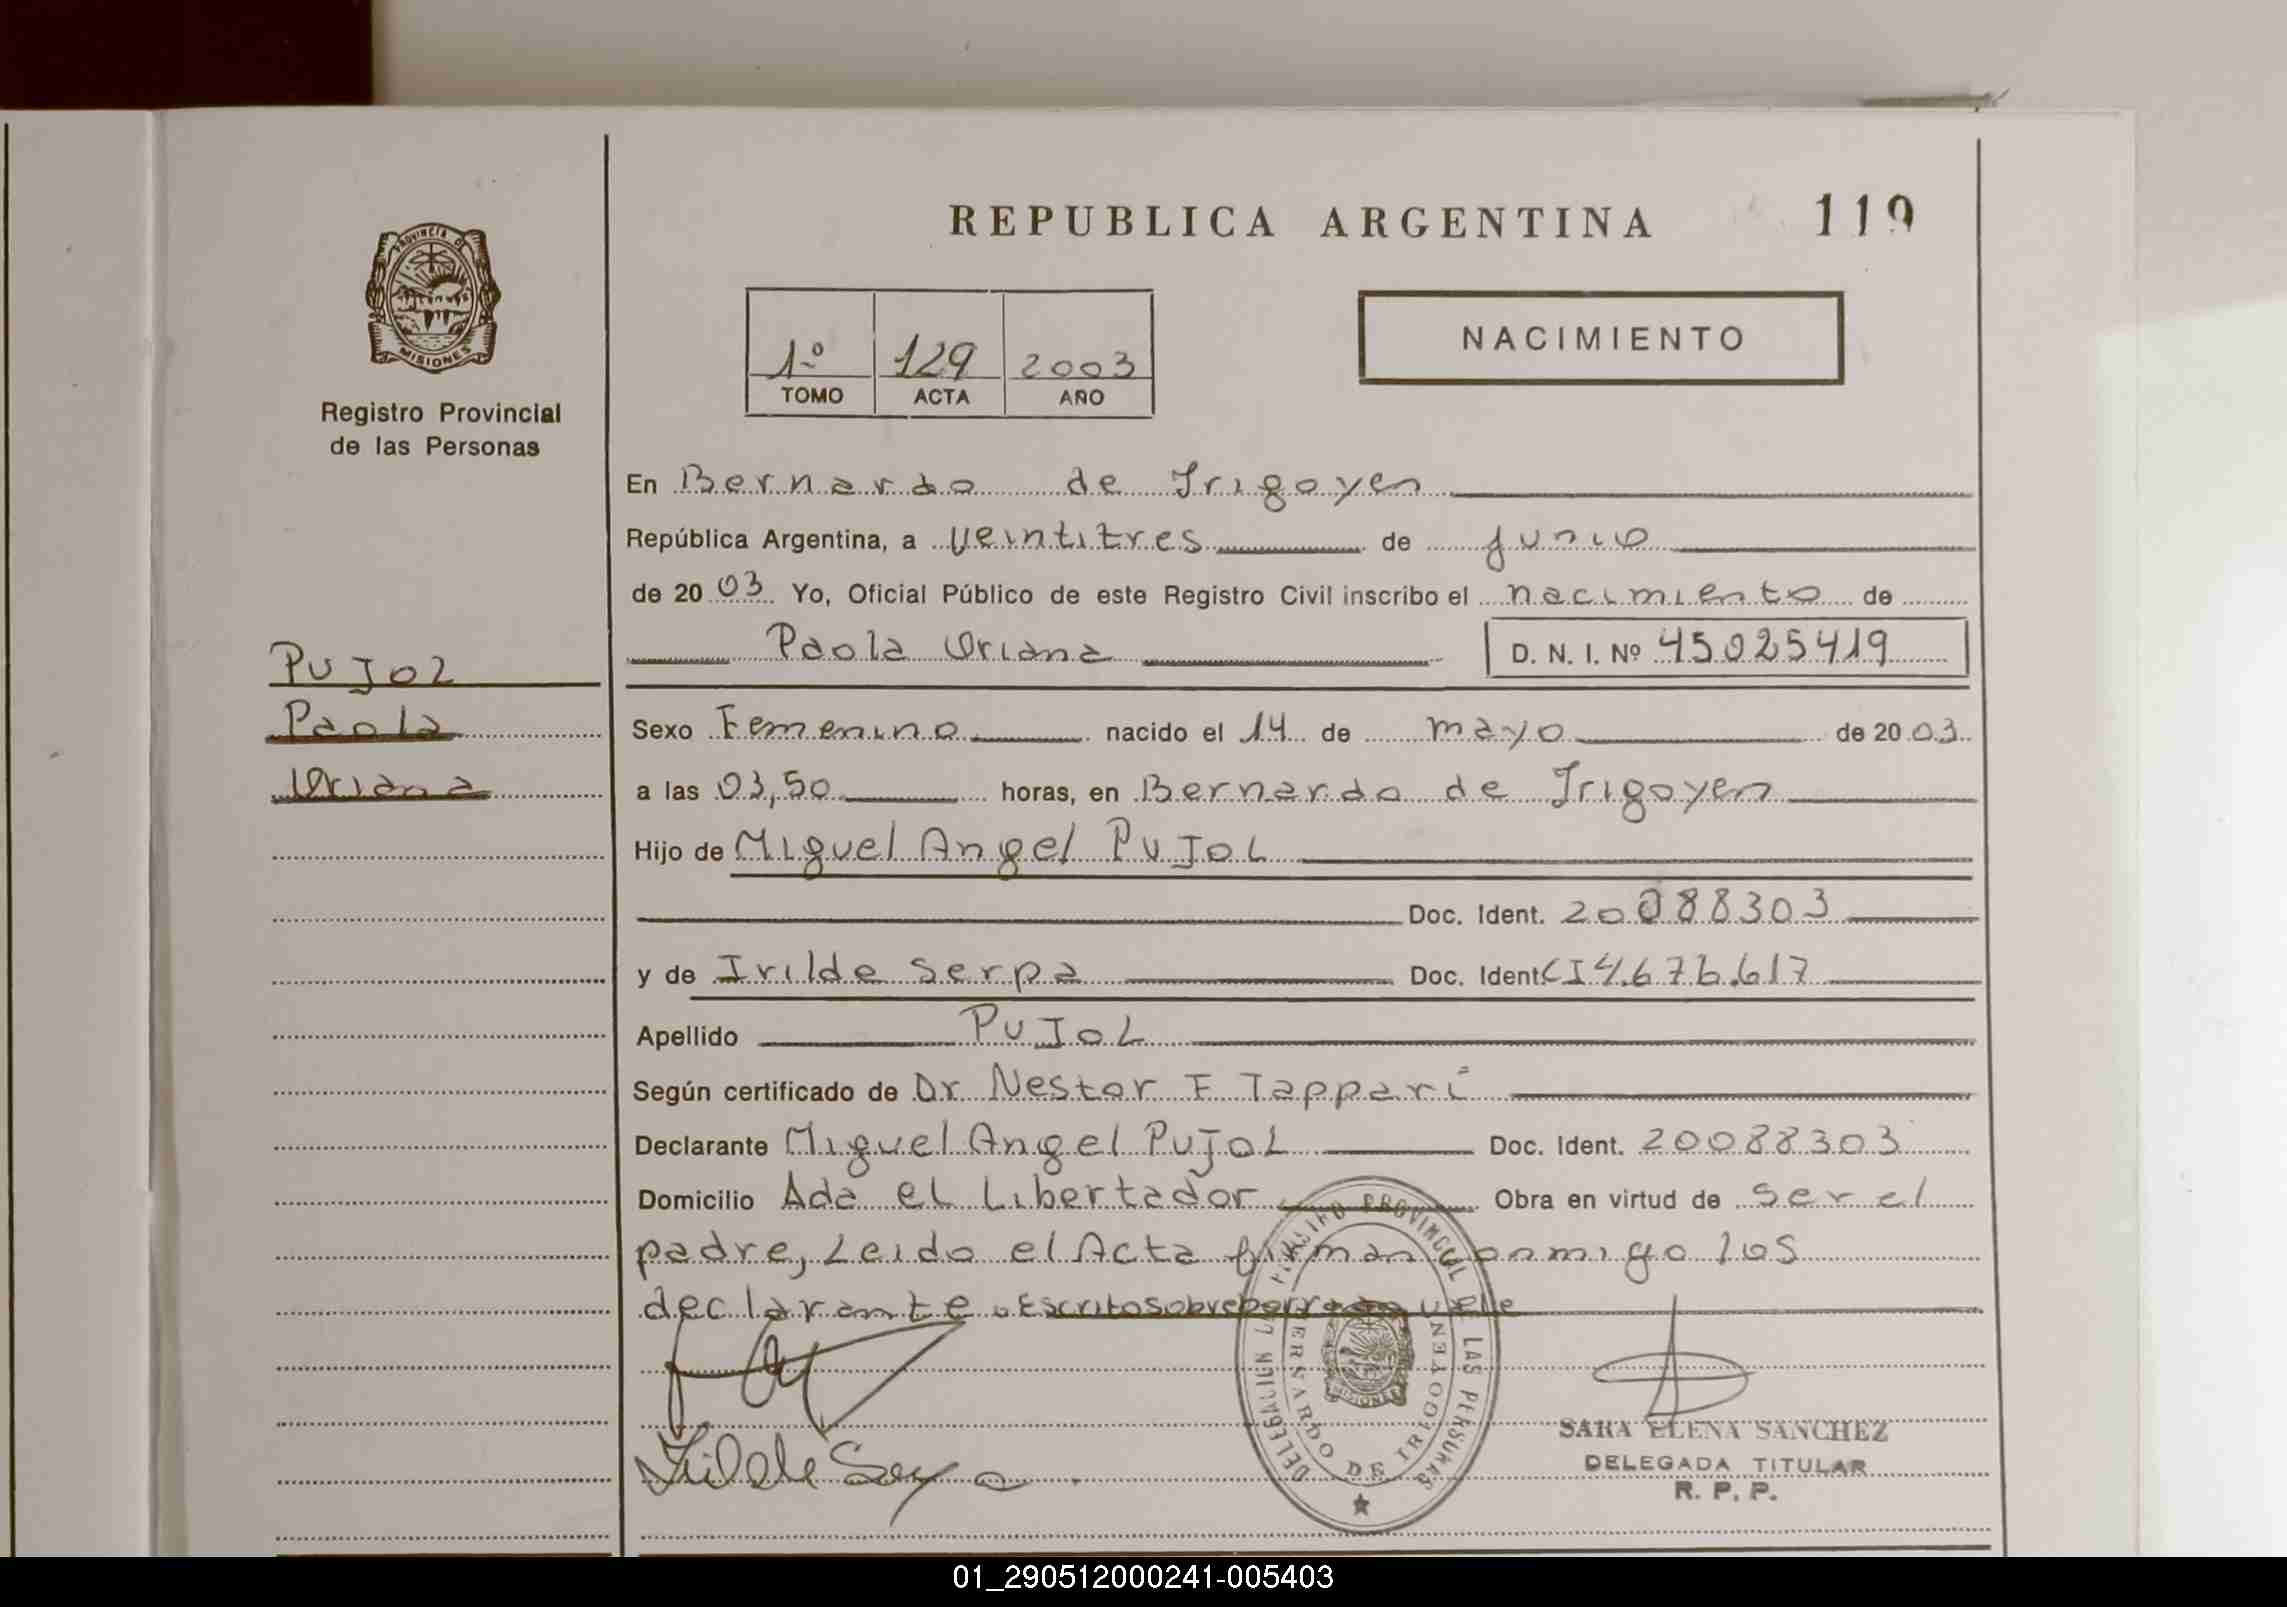 REPUBLICA ARGENTINA
119
PROVINCIA D
MISIONES
Registro Provincial
de las Personas
1º 129 2003
TOMO ACTA AÑO
NACIMIENTO
En Bernardo de Irigoyen
República Argentina, a veintitres de junio
de 20 03 Yo, Oficial Público de este Registro Civil inscribo el nacimiento de
Paola Oriana D. N. I. Nº 45025419
PUJOL
Paola
Oriana
Sexo Femenino nacido el 14 de mayo de 20 03
a las 03,50 horas, en Bernardo de Irigoyen
Hijo de Miguel Angel PUJOL
Doc. Ident. 20088303
y de Irilde Serpa Doc. Ident. CI 4.676.617
Apellido PUJOL
Según certificado de Dr Nestor F Tappari
Declarante Miguel Angel PUJOL Doc. Ident. 20088303
Domicilio Ada el Libertador Obra en virtud de ser el
padre, Leido el Acta firman conmigo los
declarante. Escrito sobre borrado vale
DELEGACION REGISTRO PROVINCIAL DE LAS PERSONAS
BERNARDO DE IRIGOYEN
MISIONES
SARA ELENA SANCHEZ
DELEGADA TITULAR
R. P. P.
01_290512000241-005403